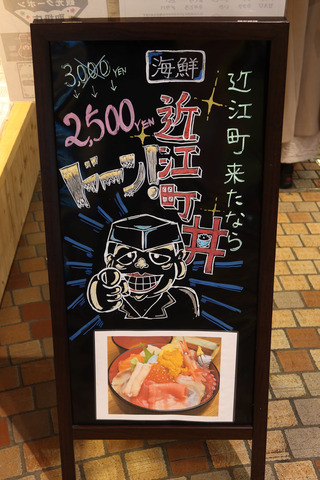 近江町来たなら
海鮮
近江町丼
3,000YEN
2,500YEN
ドーン!